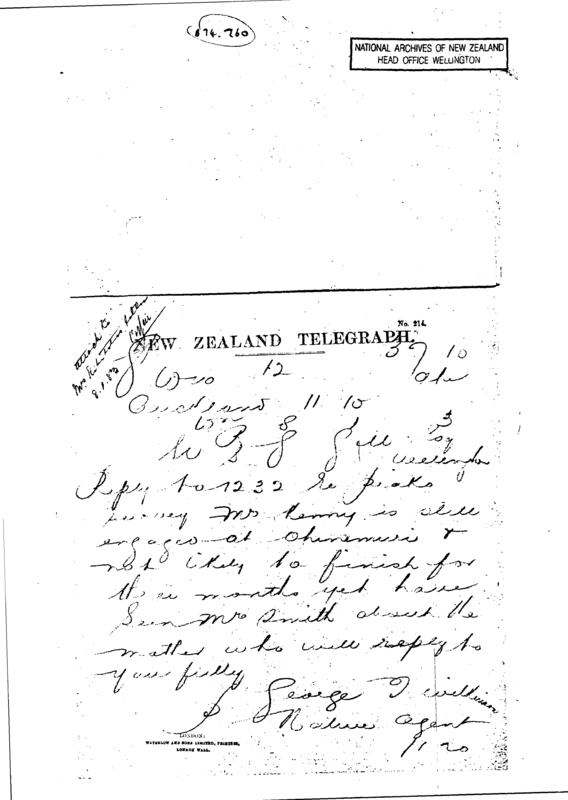 74.760
NATIONAL ARCHIVES OF NEW ZEALAND
HEAD OFFICE WELLINGTON
attach to
8.1.83
No. 214.
NEW ZEALAND TELEGRAPH.
12 39 10
Auckland 11 10
Gill Esq
Wellington
Reply to 1232 re piako
survey Mr Kenny is still
engaged at Ohinemuri &
not likely to finish for
three months yet have
Seen Mr Smith about the
matter who will reply to
you fully
George T Wilkinson
Native Agent
LONDON:
WATERLOW AND SONS LIMITED, PRINTERS,
LONDON WALL.